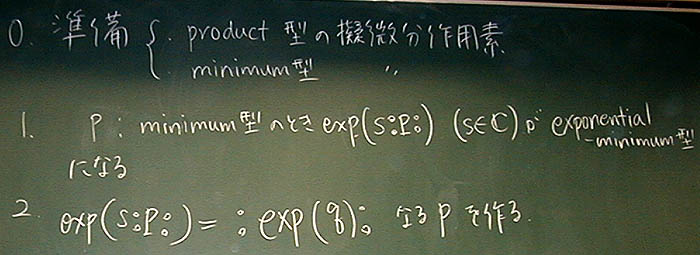 0. 準備 { ・product 型の擬微分作用素
・minimum型 〃
1. P : minimum型のとき exp(s:P:) (s∈ℂ) が exponential
-minimum型
になる
2. exp(s:P:) = :exp(q): なる P を作る.